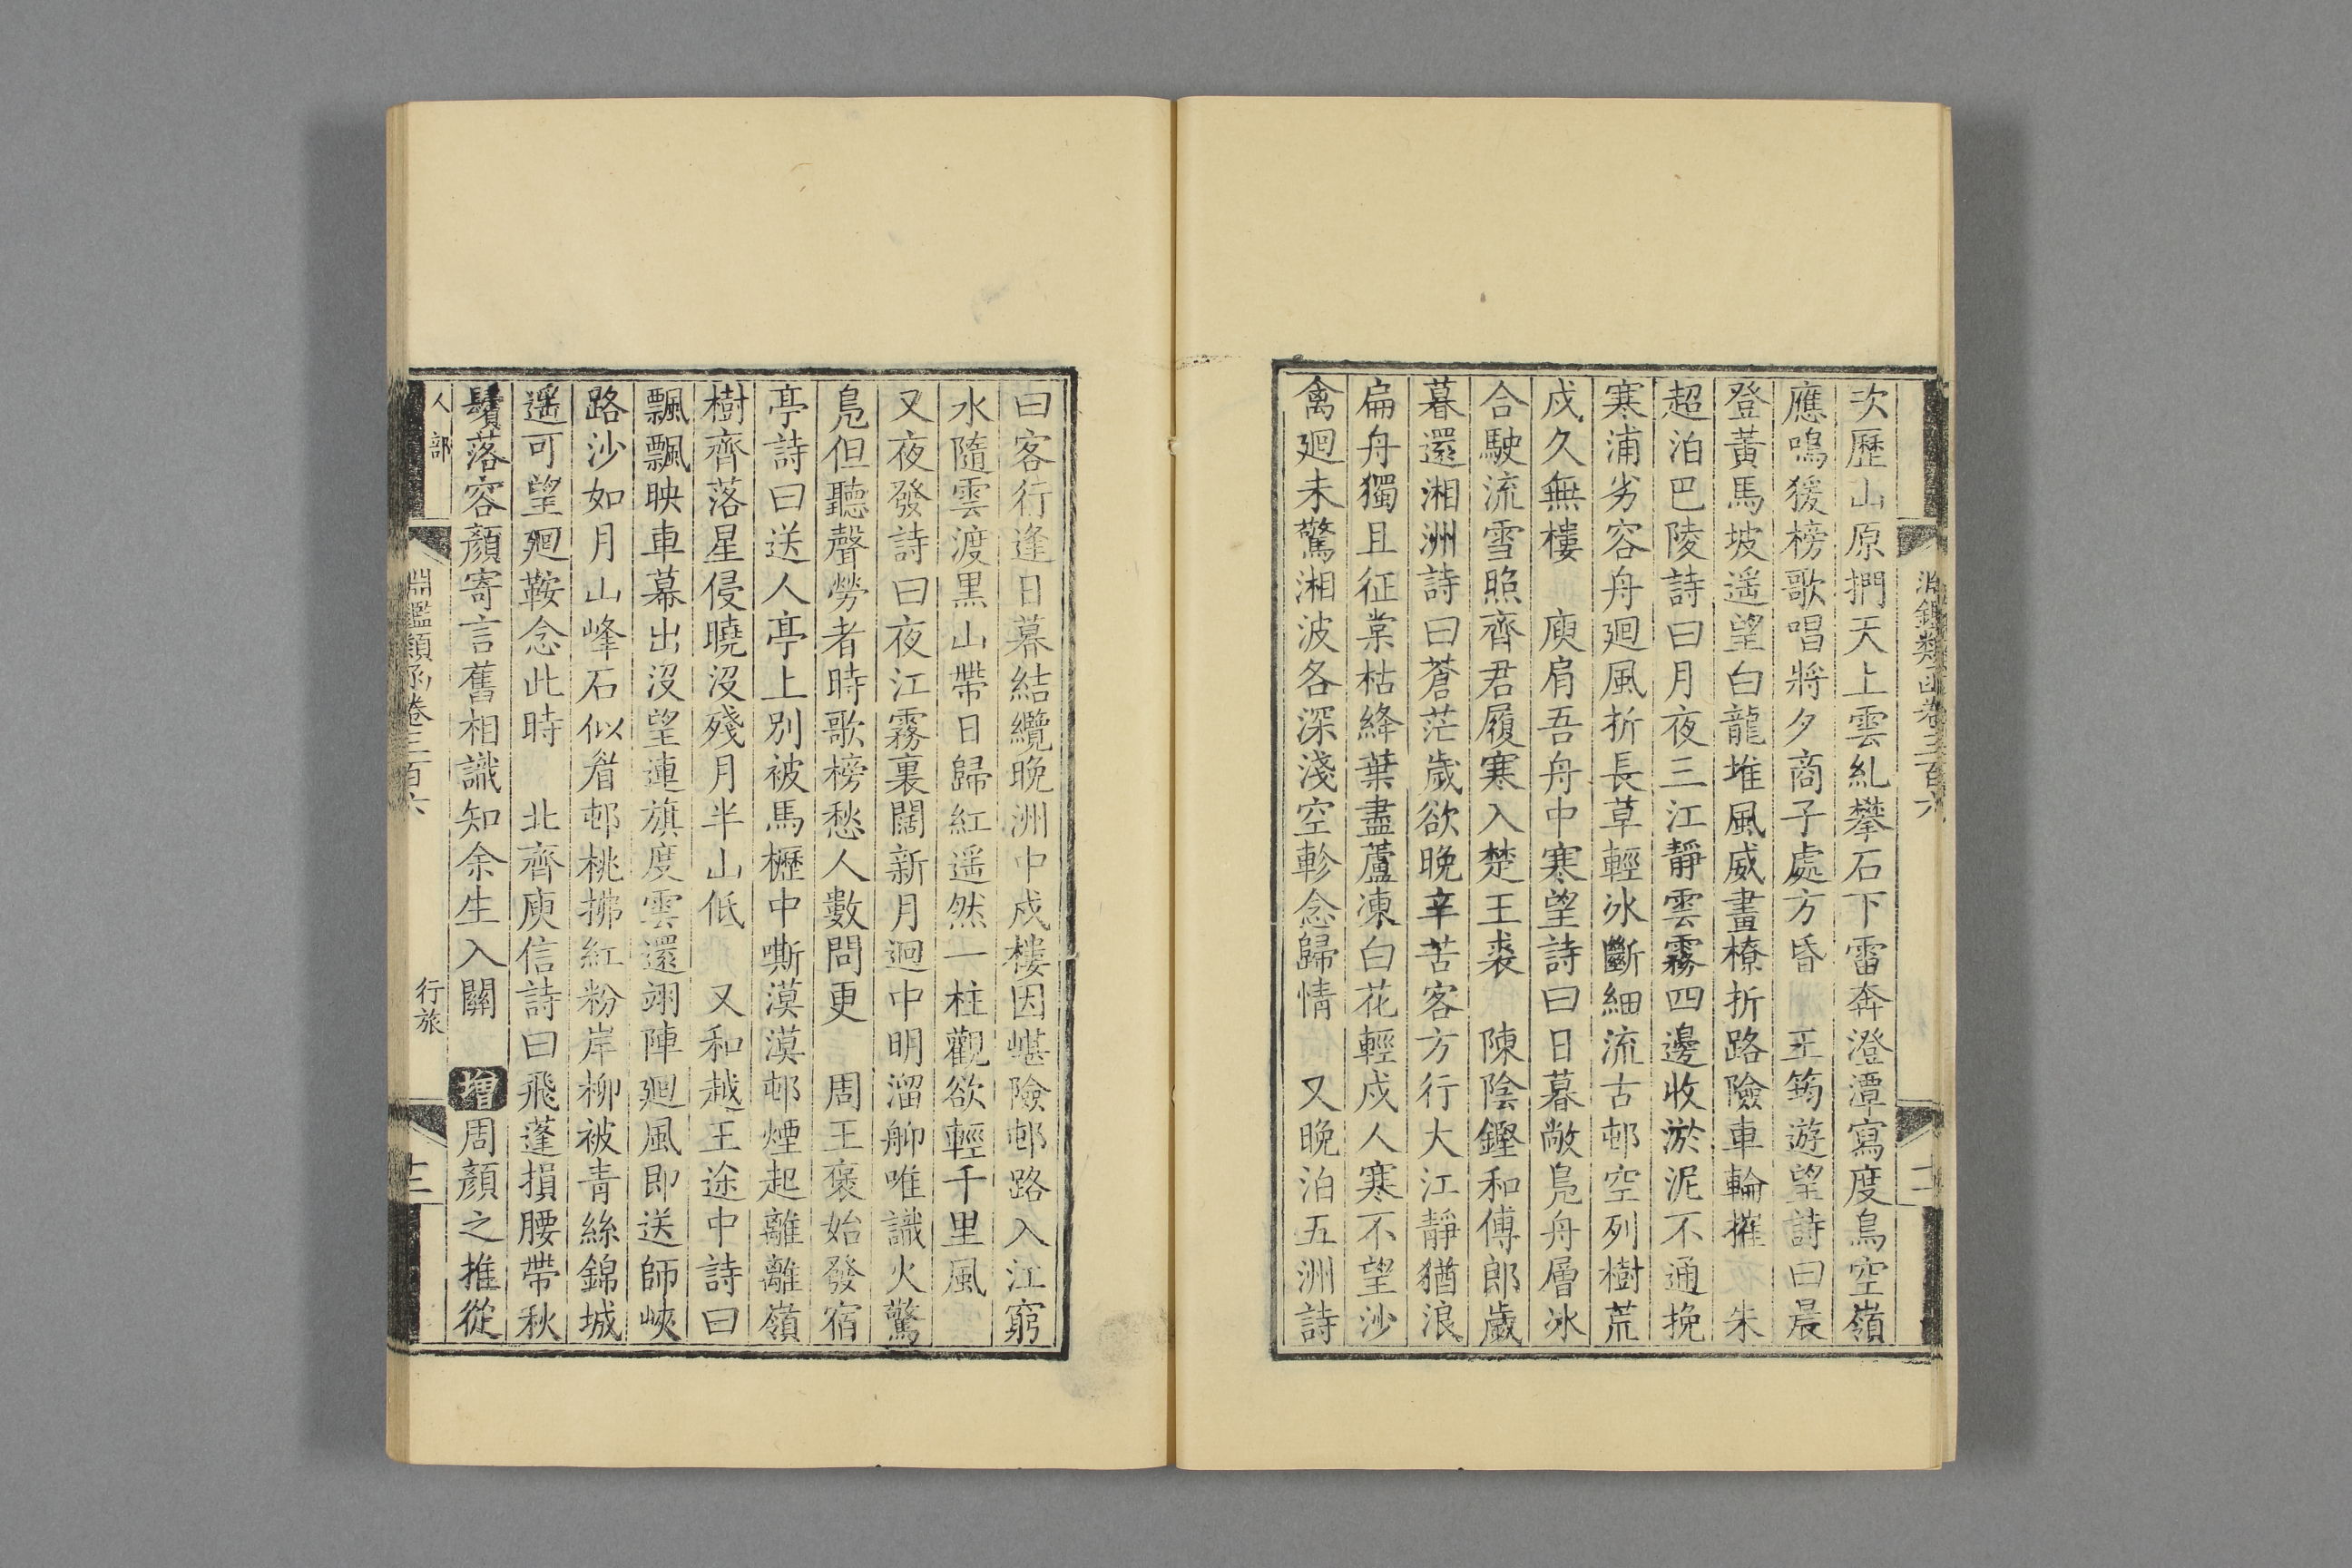 淵鑑類函卷三百六
次歷山原捫天上雲糺攀石下雷奔澄潭寫度鳥空嶺
應鳴猨榜歌唱將夕商子處方昏　王筠遊望詩曰晨
登黃馬坡遥望白龍堆風威畫橑折路險車輪摧　朱
超泊巴陵詩曰月夜三江靜雲霧四邊收淤泥不通挽
寒浦劣容舟廻風折長草輕冰斷細流古邨空列樹荒
戍久無樓　庾肩吾舟中寒望詩曰日暮敞鳬舟層冰
合駛流雪照齊君履寒入楚王裘　陳陰鏗和傅郎歲
暮還湘洲詩曰蒼茫歲欲晚辛苦客方行大江靜猶浪
扁舟獨且征棠枯絳葉盡蘆凍白花輕戍人寒不望沙
禽廻未驚湘波各深淺空軫念歸情　又晚泊五洲詩
曰客行逢日暮結纜晚洲中戍樓因嵁險邨路入江窮
水隨雲渡黒山帶日歸紅遥然一柱觀欲輕千里風
又夜發詩曰夜江霧裏闊新月迥中明溜舺唯識火驚
鳬但聽聲勞者時歌榜愁人數問更　周王褒始發宿
亭詩曰送人亭上別被馬櫪中嘶漠漠邨煙起離離嶺
樹齊落星侵曉沒殘月半山低　又和越王途中詩曰
飄飄映車幕出沒望連旗度雲還翊陣廻風即送師峽
路沙如月山峰石似眉邨桃拂紅粉岸柳被青絲錦城
遥可望廻鞍念此時　北齊庾信詩曰飛蓬損腰帶秋
鬢落容顏寄言舊相識知余生入關　增周顏之推從
人部
淵鑑類函卷三百六
行旅